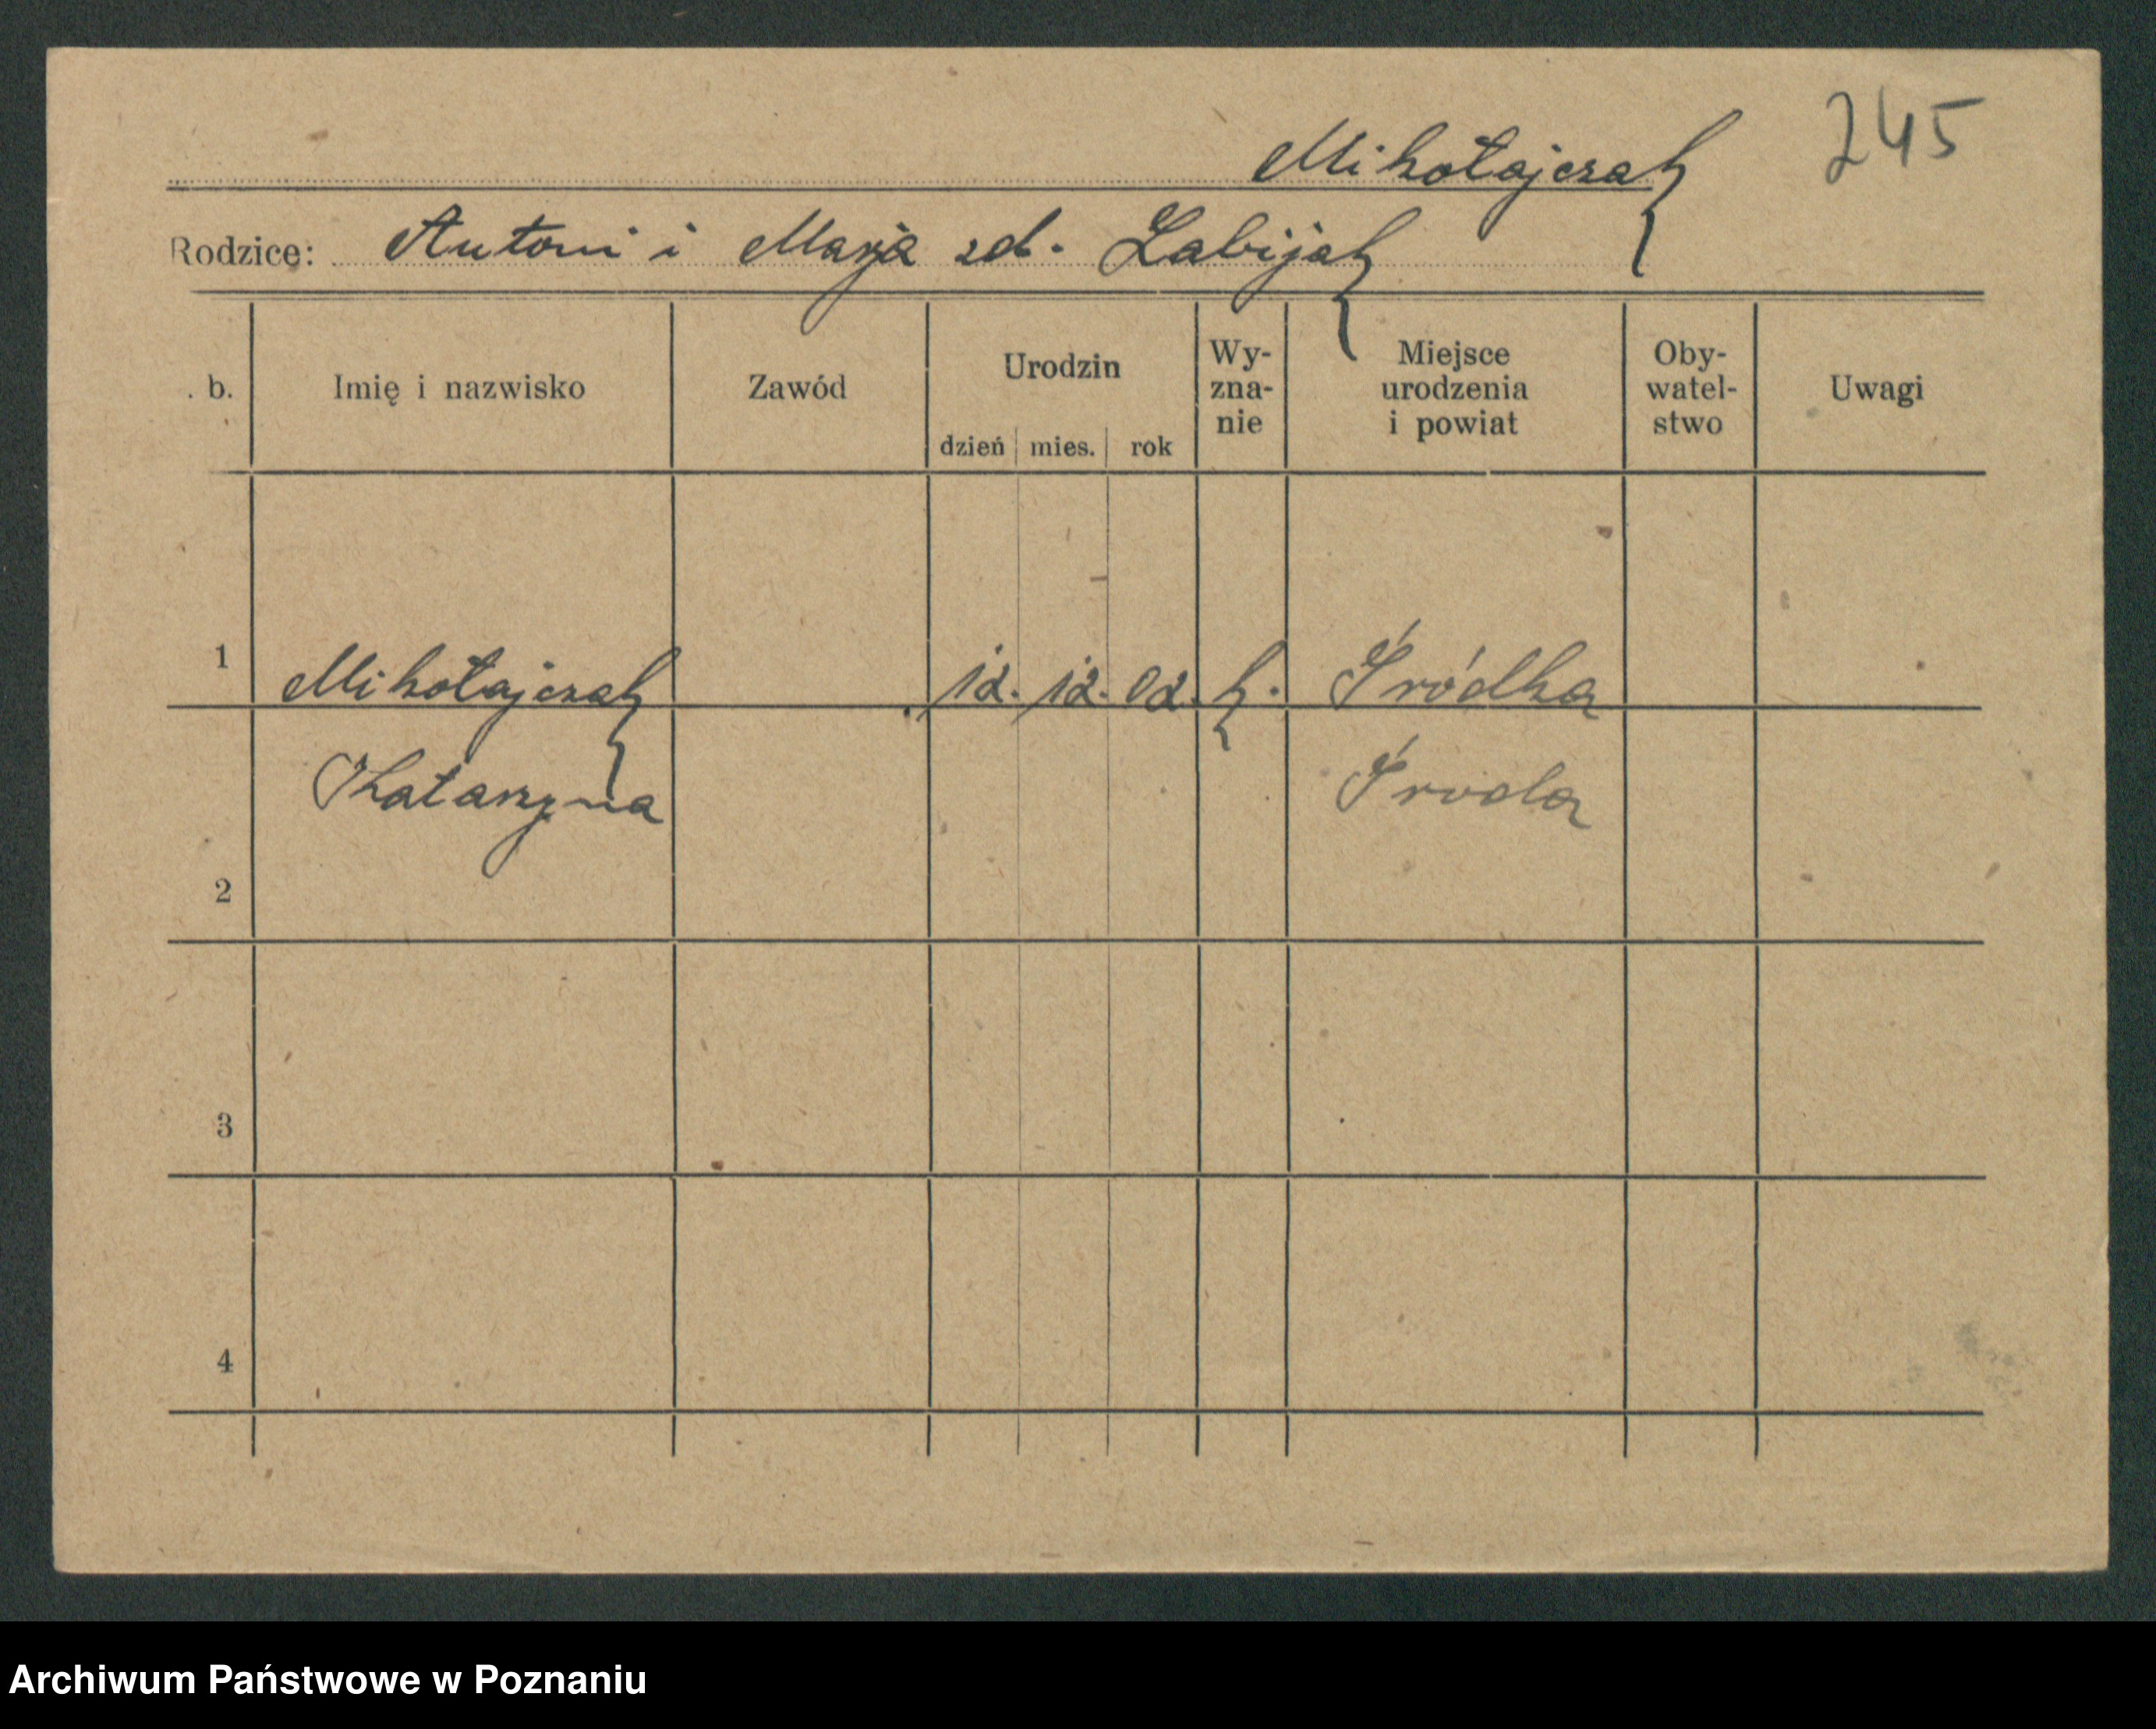 Mikołajczak 245
Rodzice: Antoni i Marja zd. Łabijak
. b. Imię i nazwisko Zawód Urodzin dzień mies. rok Wy-zna-nie Miejsce urodzenia i powiat Oby-watel-stwo Uwagi
1 Mikołajczak 12. 12. 02. k. Śródka
Katarzyna Środa
2
3
4
Archiwum Państwowe w Poznaniu